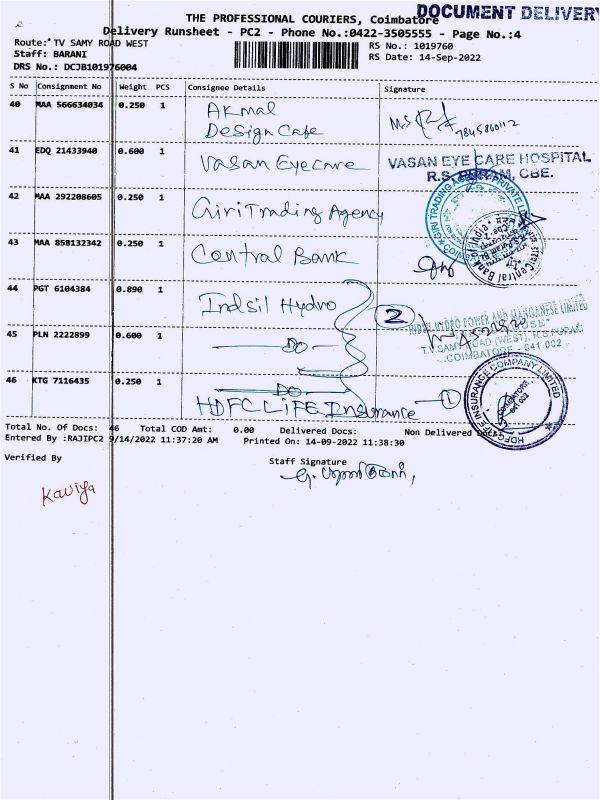 DOCUMENT DELIVERY
THE PROFESSIONAL COURIERS, Coimbatore
Delivery Runsheet - PC2 - Phone No.:0422-3505555 - Page No.:4
Route: TV SAMY ROAD WEST
RS No.: 1019760
Staff: BARANI
RS Date: 14-Sep-2022
DRS No.: DCJB101976004
S No Consignment No Weight PCS Consignee Details Signature
40 MAA 566634034 0.250 1 Akmal
Design Cafe
M.S 7845860112
41 EDQ 21433940 0.600 1 Vasan Eyecare
VASAN EYE CARE HOSPITAL
R.S. PURAM, CBE.
42 MAA 292208605 0.250 1 Giri Trading Agency
GIRI TRADING PRIVATE
43 MAA 858132342 0.250 1 Central Bank
Central Bank of India
44 PGT 6104384 0.890 1 Indsil Hydro
2
INDSIL HYDRO POWER AND MANGANESE LIMITED
T.V. SAMY ROAD (WEST), R.S.PURAM
COIMBATORE - 641 002
45 PLN 2222899 0.600 1 - DO -
46 KTG 7116435 0.250 1 - DO -
HDFC LiFE Insurance
1
HDFC LIFE INSURANCE COMPANY LIMITED
COIMBATORE
641 002
Total No. Of Docs: 46 Total COD Amt: 0.00 Delivered Docs: Non Delivered Docs:
Entered By :RAJIPC2 9/14/2022 11:37:20 AM Printed On: 14-09-2022 11:38:30
Verified By
Staff Signature
Kaviya